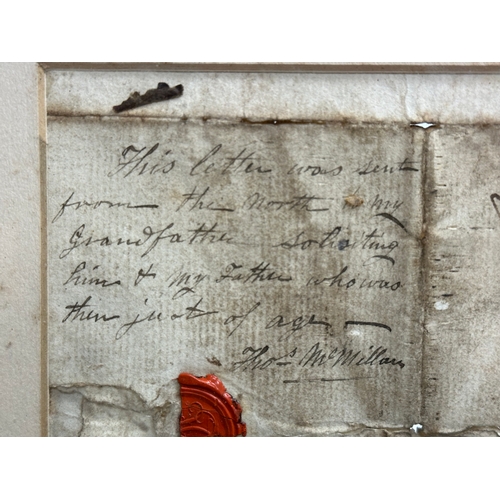 This letter was sent
from the North to my
Grandfather soliciting
him & My Father who was
then just of age —
Thos. McMillan